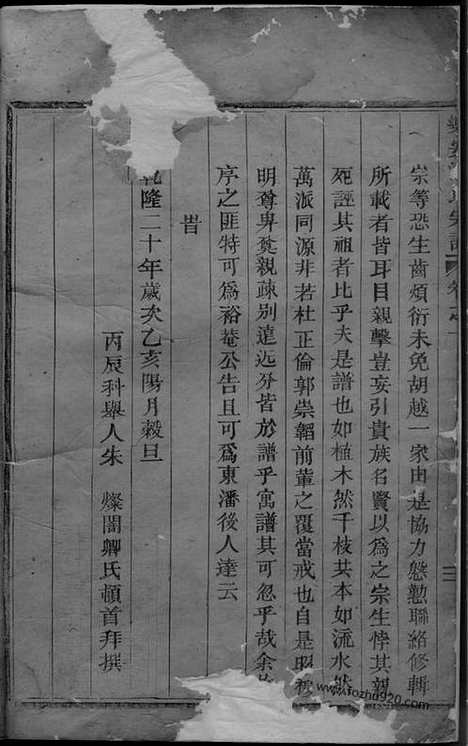 宗等恐生齒煩衍未免胡越一家由是協力慇懃聯絡修輯
所載者皆耳目親擊豈妄引貴族名賢以為之宗生悖其親
死誣其祖者比乎夫是譜也如植木然千枝共本如流水然
萬派同源非若杜正倫郭崇韜前輩之覆當戒也自是昭穆
明尊卑奠親疎别遠近分皆於譜乎寓譜其可忽乎哉余故
序之匪特可為裕菴公告且可為東潘後人達云
旹
乾隆二十年歲次乙亥陽月穀旦
丙辰科舉人朱 燦閣卿氏頓首拜撰
www.fozhu920.com